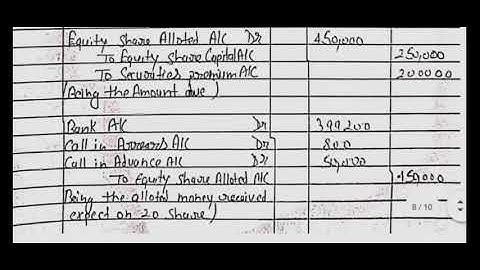 Equity Share Alloted A/C Dr 450,000
To Equity Share Capital A/C 250,000
To Securities premium A/C 200000
(Being the Amount due)
Bank A/C Dr 399200
Call in Arrears A/C Dr 800
Call in Advance A/C Dr
To Equity Share Alloted A/C 450,000
(Being the alloted money received
expect on 20 share)
8 / 10